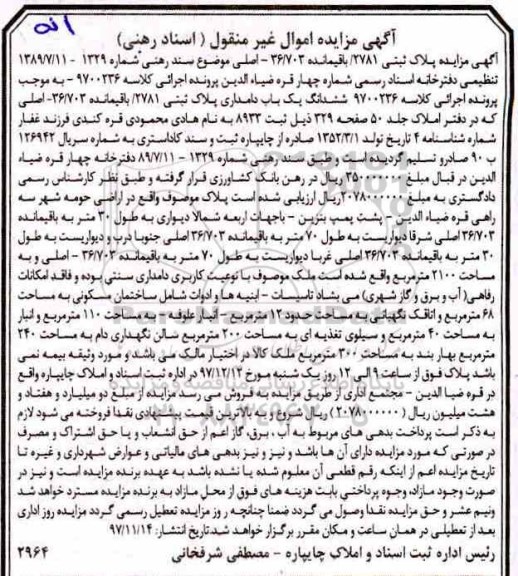 آگهی مزایده اموال غیر منقول ( اسناد رهنی)
آگهی مزایده پلاک ثبتی ۲۷۸۱/ باقیمانده ۳۶/۷۰۳ - اصلی موضوع سند رهنی شماره ۱۳۲۹ - ۱۳۸۹/۷/۱۱
تنظیمی دفترخانه اسناد رسمی شماره چهار قره ضیاء الدین پرونده اجرائی کلاسه ۹۷۰۰۲۳۶ - به موجب
پرونده اجرائی کلاسه ۹۷۰۰۲۳۶ ششدانگ یک باب دامداری پلاک ثبتی ۲۷۸۱/ باقیمانده ۳۶/۷۰۳- اصلی
که در دفتر املاک جلد ۵۰ صفحه ۳۲۹ ذیل ثبت ۸۹۳۳ به نام هادی محمودی قره کندی فرزند غفار
شماره شناسنامه ۴ تاریخ تولد ۱۳۵۲/۳/۱ صادره از چایپاره ثبت و سند کاداستری به شماره سریال ۱۲۶۹۴۲
ب ۹۰ صادر و تسلیم گردیده است و طبق سند رهنی شماره ۱۳۲۹ - ۸۹/۷/۱۱ دفترخانه چهار قره ضیاء
الدین در قبال مبلغ ۳۵۰۰۰۰۰۰۰ ریال در رهن بانک کشاورزی قرار گرفته و طبق نظر کارشناس رسمی
دادگستری به مبلغ ۲۰۷۸۰۰۰۰۰۰ ریال ارزیابی شده است پلاک موصوف واقع در اراضی حومه شهر سه
راهی قره ضیاء الدین - پشت پمپ بنزین - باجهات اربعه شمالا دیواری به طول ۳۰ متر به باقیمانده
۳۶/۷۰۳ اصلی شرقا دیواریست به طول ۷۰ متر به باقیمانده ۳۶/۷۰۳ اصلی جنوبا درب و دیواریست به طول
۳۰ متر به باقیمانده ۳۶/۷۰۳ اصلی غربا دیواریست به طول ۷۰ متر به باقیمانده ۳۶/۷۰۳ - اصلی و به
مساحت ۲۱۰۰ مترمربع واقع شده است ملک موصوف با نوعیت کاربری دامداری سنتی بوده و فاقد امکانات
رفاهی( آب و برق و گاز شهری) می بشاد تاسیسات - ابنیه ها و ادوات شامل ساختمان مسکونی به مساحت
۶۸ مترمربع و اتاقک نگهبانی به مساحت حدود ۱۲ مترمربع- انبار علوفه - به مساحت ۱۱۰ مترمربع و انبار
به مساحت ۴۰ مترمربع و سیلوی تغذیه ای به مساحت ۲۰۰ مترمربع شالن نگهداری دام به مساحت ۲۴۰
مترمربع بهار بند به مساحتتر ۳۰۰ مترمربع ملک کالا در اختیار مالک می باشد و مورد وثیقه بیمه نمی
باشد پلاک فوق از ساعت ۹ الی ۱۲ روز یک شنبه مورخ ۹۷/۱۲/۱۲ در اداره ثبت اسناد و املاک چایپاره واقع
در قره ضیا الدین - مجتمع اداری از طریق مزایده به فروش می رسد مزایده از مبلغ دو میلیارد و هفتاد و
هشت میلیون ریال ( ۲۰۷۸۰۰۰۰۰۰) ریال شروع و به بالاترین قیمت پیشنهادی نقدا فروخته می شود لازم
به ذکر است پرداخت بدهی های مربوط به آب ، برق، گاز اعم از حق انشعاب و یا حق اشتراک و مصرف
در صورتی که مورد مزایده دارای آن ها باشد و نیز و نیز بدهی های مالیاتی و عوارض شهرداری و غیره تا
تاریخ مزایده اعم از اینکه رقم قطعی آن معلوم شده یا نشده باشد به عهده برنده مزایده است و نیز در
صورت وجود مازاد، وجوه پرداختی بابت هزینه های فوق از محل مازاد به برنده مزایده مسترد خواهد شد
ونیم عشر و حق مزایده نقدا وصول می گردد ضمنا چنانچه روز مزایده تعطیل رسمی گردد مزایده روز اداری
بعد از تعطیلی در همان ساعت و مکان مقرر برگزار خواهد شد.تاریخ انتشار: ۹۷/۱۱/۱۴
رئیس اداره ثبت اسناد و املاک چایپاره - مصطفی شرفخانی ۲۹۶۴